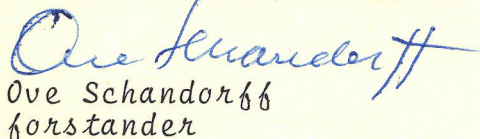 Ove Schandorff
Ove Schandorff
forstander